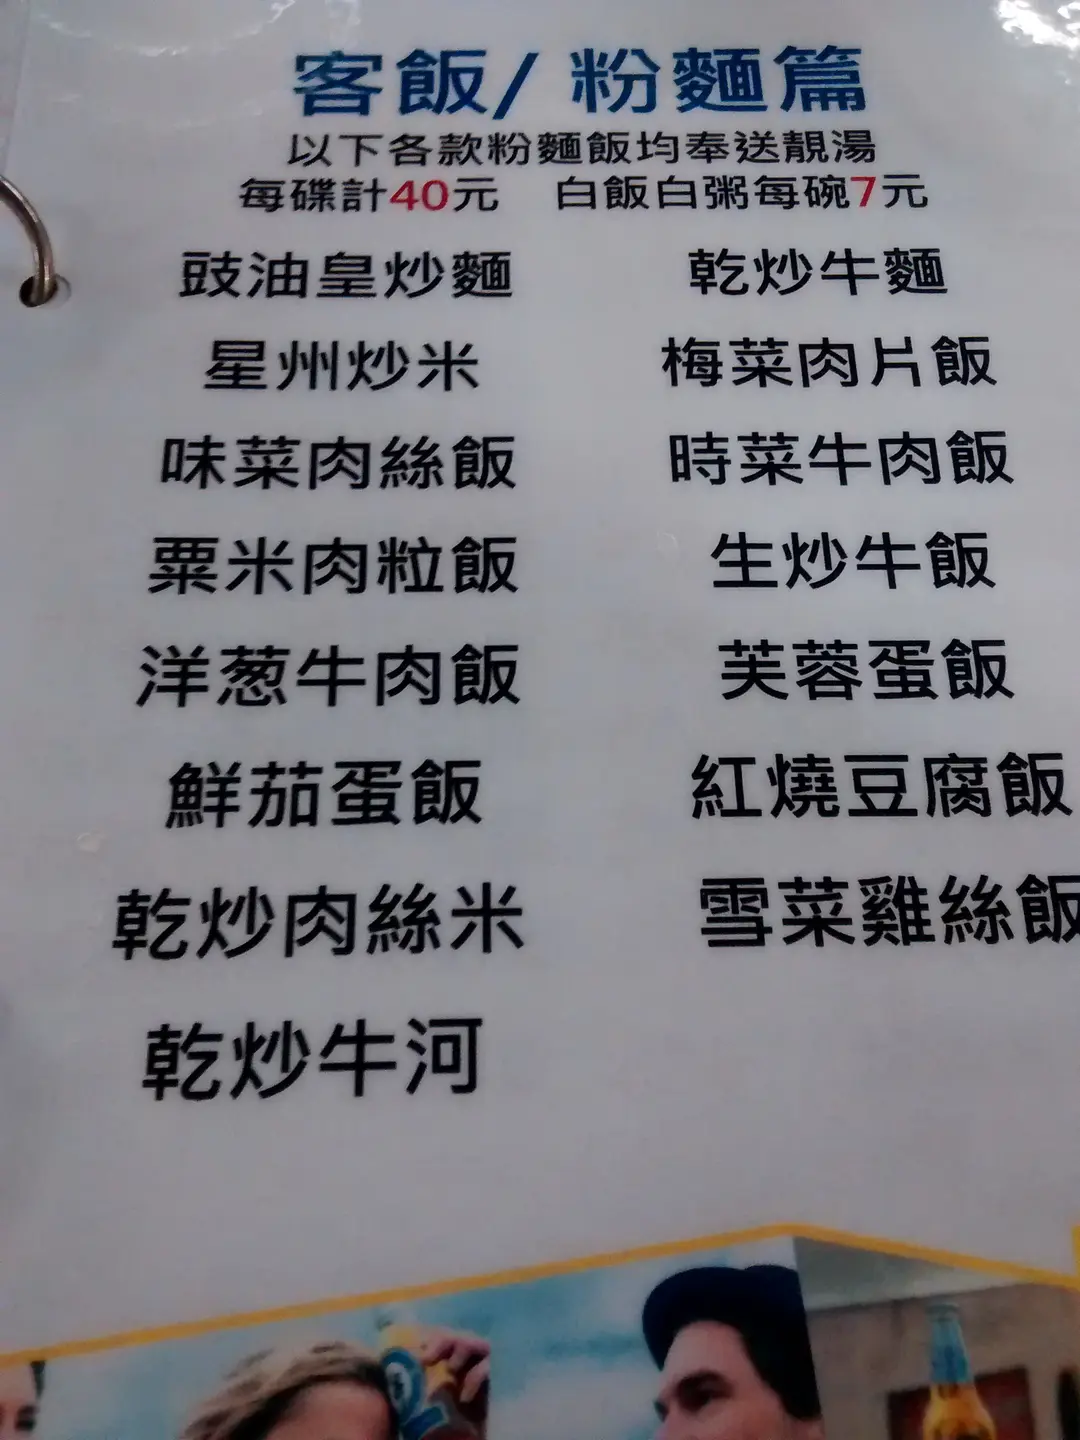 客飯/ 粉麵篇
以下各款粉麵飯均奉送靚湯
每碟計40元 白飯白粥每碗7元
豉油皇炒麵 乾炒牛麵
星州炒米 梅菜肉片飯
味菜肉絲飯 時菜牛肉飯
粟米肉粒飯 生炒牛飯
洋葱牛肉飯 芙蓉蛋飯
鮮茄蛋飯 紅燒豆腐飯
乾炒肉絲米 雪菜雞絲飯
乾炒牛河